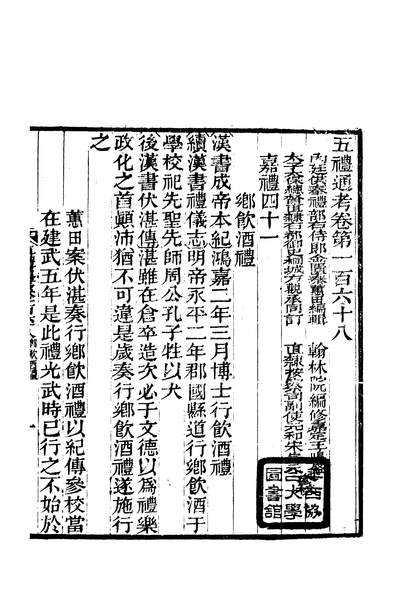 五禮通考卷第一百六十八
內廷供奉禮部右侍郎金匱秦蕙田編輯
翰林院編修嘉定王鳴盛
太子太保總督直隸右都御史桐城方觀承同訂
直隸按察司副使元和宋宗元
嘉禮四十一
鄉飲酒禮
漢書成帝本紀鴻嘉二年三月博士行飲酒禮
續漢書禮儀志明帝永平二年郡國縣道行鄉飲酒于
學校祀先聖先師周公孔子牲以犬
後漢書伏湛傳湛雖在倉卒造次必于文德以爲禮樂
政化之首顚沛猶不可違是歲奏行鄉飲酒禮遂施行
之
蕙田案伏湛奏行鄉飲酒禮以紀傳參校當
在建武五年是此禮光武時已行之不始於
一
協
大學
圖書館